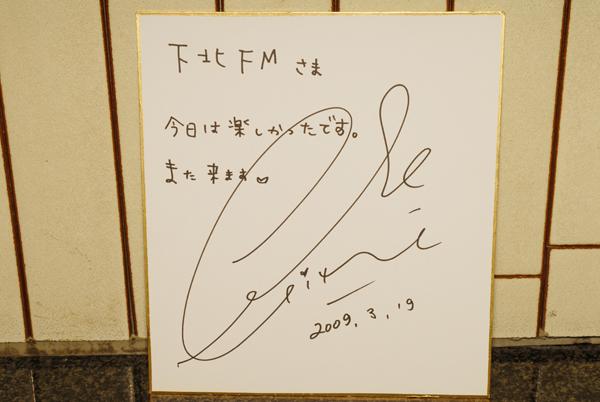 下北FM さま
今日は楽しかったです。
また来ます♡
2009.3.19